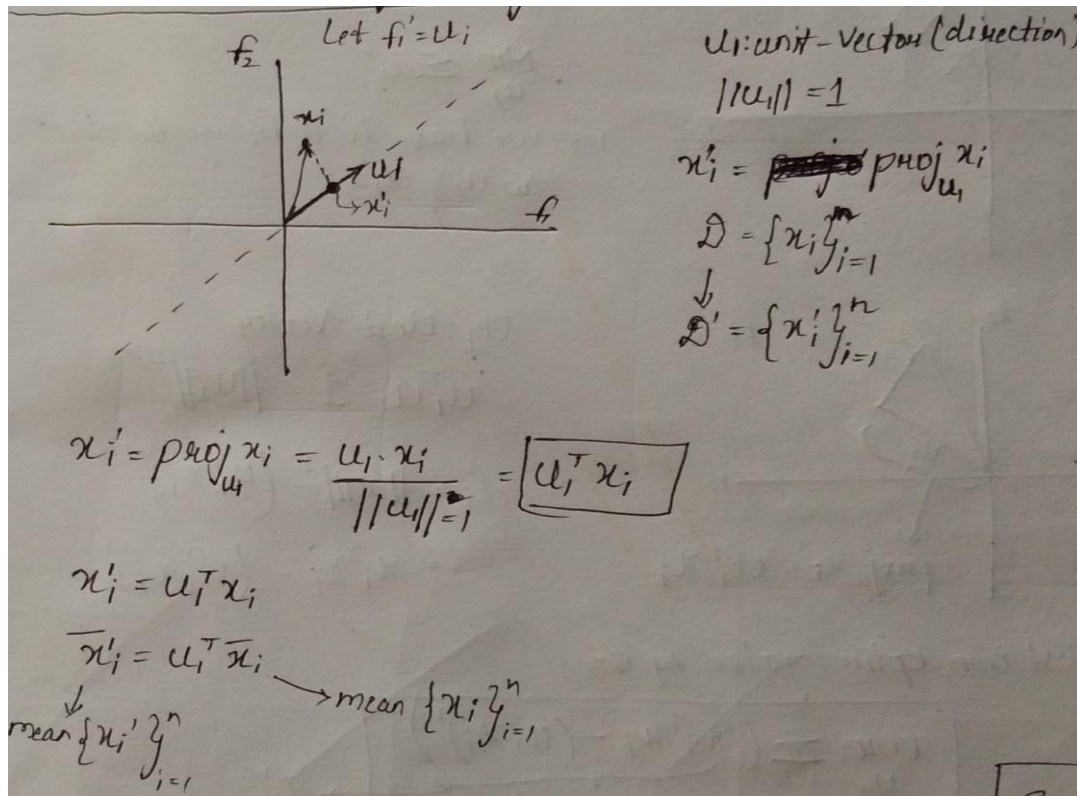 Let f₁' = uᵢ
f₂
xᵢ
u₁
→ xᵢ'
f₁
u₁: unit-vector (direction)
||u₁|| = 1
xᵢ' = proj_u₁ xᵢ
D = {xᵢ}ⁿᵢ₌₁
↓
D' = {xᵢ'}ⁿᵢ₌₁
xᵢ' = proj_u₁ xᵢ = u₁ · xᵢ / ||u₁|| = 1 = u₁ᵀ xᵢ
xᵢ' = u₁ᵀ xᵢ
x̄ᵢ' = u₁ᵀ x̄ᵢ
↓ → mean {xᵢ}ⁿᵢ₌₁
mean {xᵢ'}ⁿᵢ₌₁